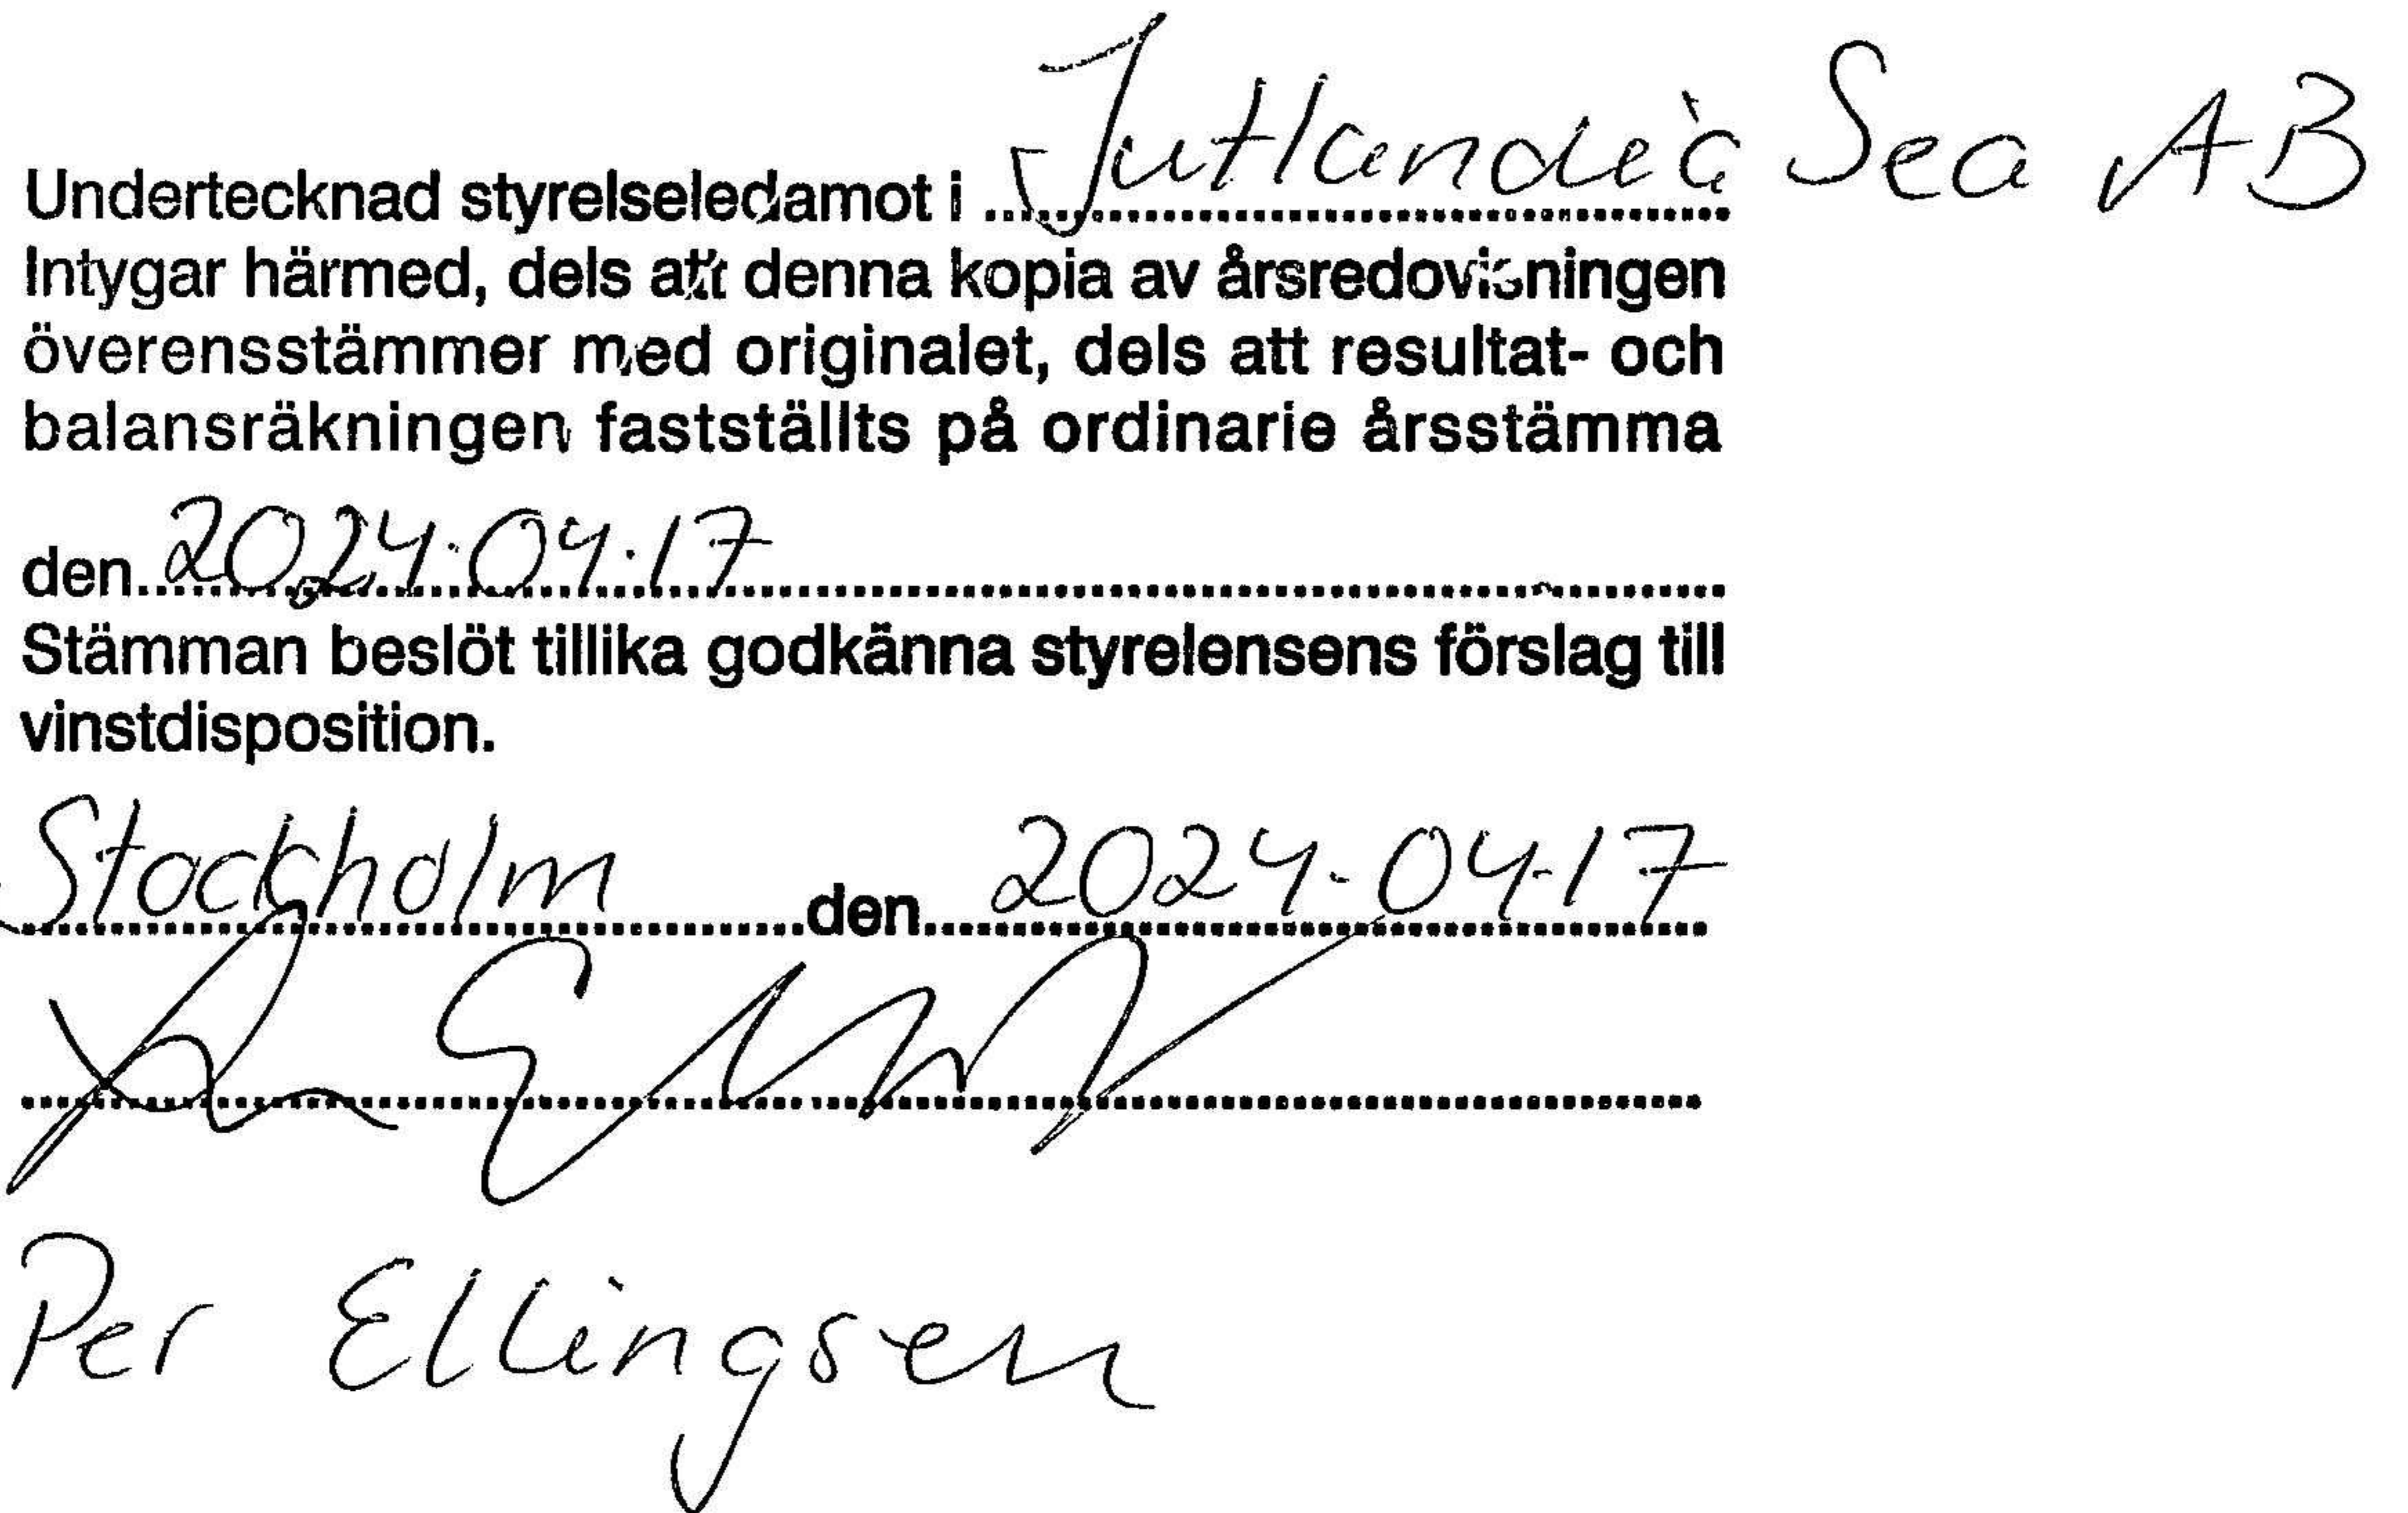 Undertecknad styrelseledamot i Jutlandia Sea AB
Intygar härmed, dels att denna kopia av årsredovisningen
överensstämmer med originalet, dels att resultat- och
balansräkningen fastställts på ordinarie årsstämma
den 2024-04-17
Stämman beslöt tillika godkänna styrelensens förslag till
vinstdisposition.
Stockholm den 2024-04-17
Per Ellingsen